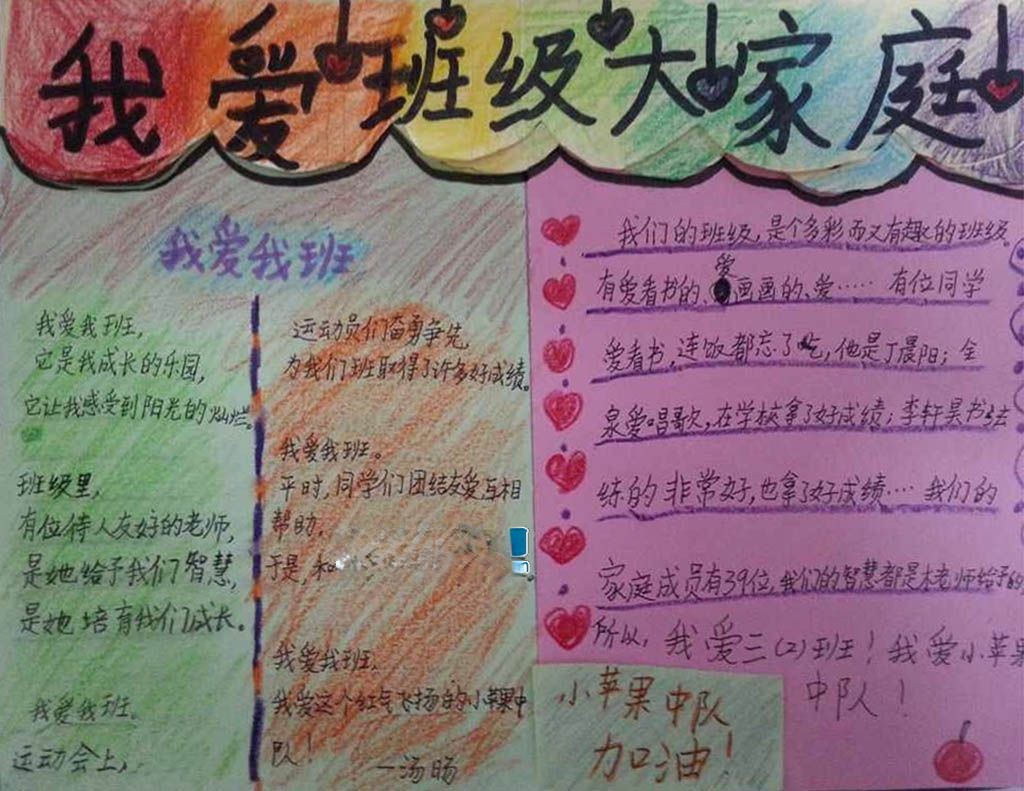 我爱班级大家庭
我爱我班
我爱我班,
它是我成长的乐园,
它让我感受到阳光的灿烂。
班级里,
有位待人友好的老师,
是她给予我们智慧,
是她培育我们成长。
我爱我班。
运动会上,
运动员们奋勇争先,
为我们班取得了许多好成绩。
我爱我班。
平时,同学们团结友爱互相
帮助,
于是,和
我爱我班,
我爱这个红气飞扬的小苹果中
队!
—汤旸
我们的班级,是个多彩而又有趣的班级。
有爱看书的、爱画画的、爱…… 有位同学
爱看书,连饭都忘了吃,他是丁晨阳;全
泉爱唱歌,在学校拿了好成绩;李轩昊书法
练的非常好,也拿了好成绩… 我们的
家庭成员有39位,我们的智慧都是木老师给予的
所以,我爱三(2)班!我爱小苹果
中队!
小苹果中队
加油!